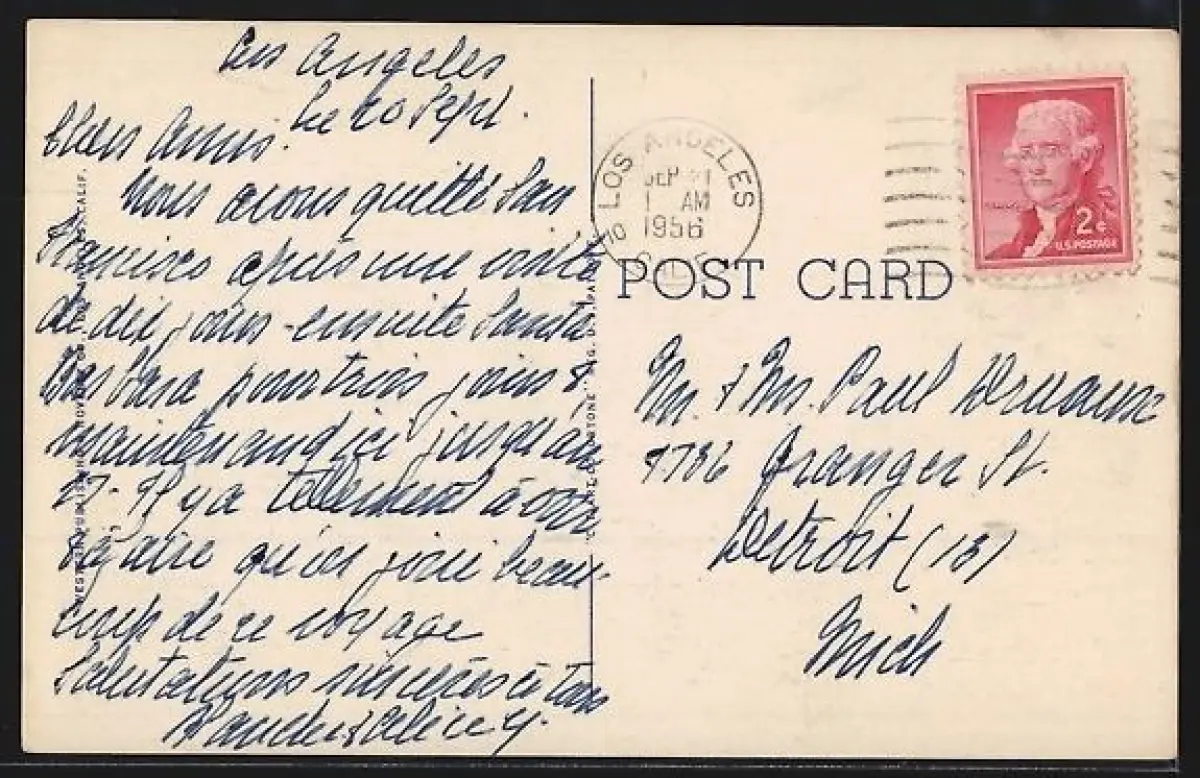 Los Angeles
Le 20 Sept.
Chers Amis.
Nous avons quitté San
Francisco après une visite
de dix jours - ensuite Santa
Barbara pour trois jours &
maintenant ici jusqu'au
27. Il y a tellement à voir
qu'on joui beau-
coup de ce voyage
Salutations sincères à tous
LOS ANGELES
SEP
1 AM
1956
CALIF
10
2¢
U.S. POSTAGE
POST CARD
M. & Mr. Paul
Granger St.
Detroit (13)
Mich